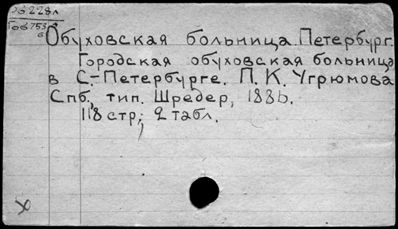 Об228л
Гов753
6
Обуховская больница. Петербург.
Городская обуховская больница
в С.-Петербурге. П. К. Угрюмова
Спб., тип. Шредер, 1886.
118 стр; 2 табл.